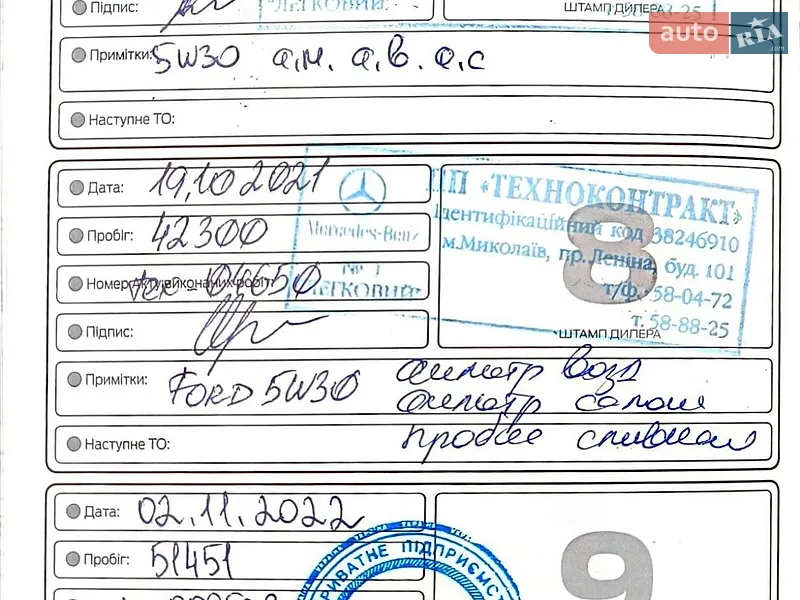 Підпис:
"ЛЕГКОВИЙ"
ШТАМП ДИЛЕРА
58-88-25
auto RIA .com
Примітки: 5W30 а.м. а.в. а.с
Наступне ТО:
Дата: 19,10 2021
Пробіг: 42300
Номер Акту виконаних робіт: тек-04650
Підпис:
Mercedes-Benz
№ 1
ЛЕГКОВИЙ
ПП «ТЕХНОКОНТРАКТ»
Ідентифікаційний код 38246910
м.Миколаїв, пр.Леніна, буд. 101
т/ф. 58-04-72
т. 58-88-25
8
ШТАМП ДИЛЕРА
Примітки: FORD 5W30
фильтр возд
фильтр салон
Наступне ТО:
пробке сливной
Дата: 02.11.2022
Пробіг: 51451
ПРИВАТНЕ ПІДПРИЄМСТ
9